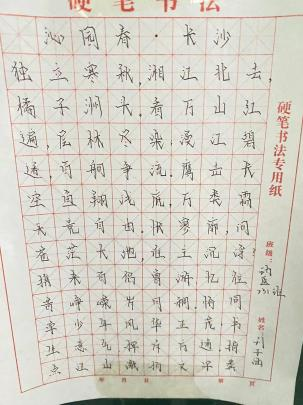 硬笔书法
沁园春·长沙
独立寒秋,湘江北去,
橘子洲头,看万山江
遍,层林尽染漫江碧
透,百舸争流.鹰击长
空鱼翔浅底,万类霜
天竞自由,怅寥廓,问
苍茫大地,谁主沉浮
携来百侣曾游.忆往
峥嵘岁月稠.恰同
少年风华正茂.书
生意气挥斥方遒
点江山
硬笔书法专用纸
班级:
姓名:
年 月 日 第 页